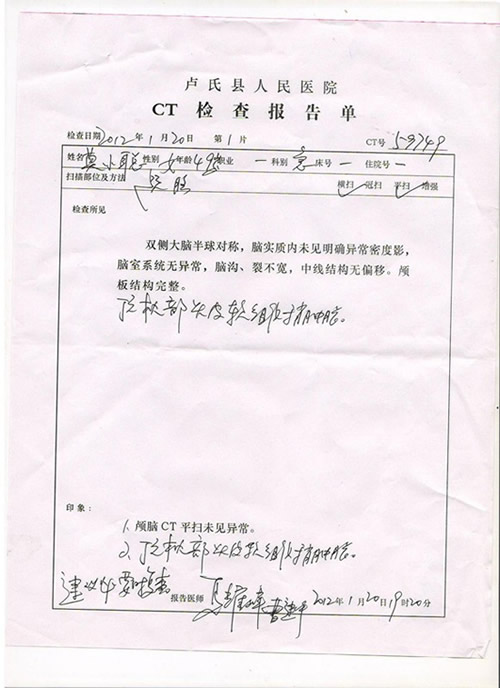 卢氏县人民医院
CT 检查报告单
检查日期 2012年1月20日 第1片 CT号 59749
姓名 莫小聪 性别 女 年龄 4岁 职业 — 科别 急 床号 — 住院号 —
扫描部位及方法 颅脑 横扫 冠扫 平扫 增强
检查所见
双侧大脑半球对称，脑实质内未见明确异常密度影，
脑室系统无异常，脑沟、裂不宽，中线结构无偏移。颅
板结构完整。
顶枕部头皮软组织肿胀。
印象：
1、颅脑 CT 平扫未见异常。
2、顶枕部头皮软组织肿胀。
建议必要时复查
报告医师 2012年1月20日19时20分